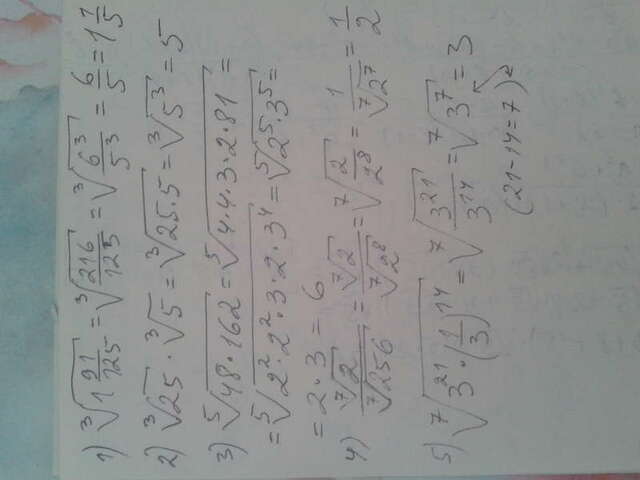 1) ∛(1 91/125) = ∛(216/125) = ∛(6³/5³) = 6/5 = 1 1/5
2) ∛25 · ∛5 = ∛(25·5) = ∛(5³) = 5
3) ⁵√(48·162) = ⁵√(4·4·3·2·81) =
= ⁵√(2²·2²·3·2·3⁴) = ⁵√(2⁵·3⁵) =
= 2·3 = 6
4) ⁷√2/⁷√256 = ⁷√2/⁷√2⁸ = ⁷√(2/2⁸) = 1/⁷√2⁷ = 1/2
5) ⁷√(3²¹·(1/3)¹⁴) = ⁷√(3²¹/3¹⁴) = ⁷√3⁷ = 3
(21-14=7)